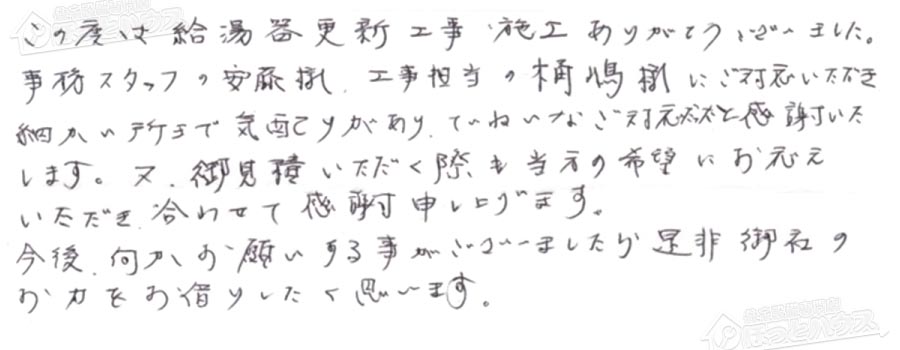 この度は給湯器更新工事、施工ありがとうございました。
事務スタッフの安藤様、工事担当の楠嶋様にご対応いただき
細かい所まで気配りがあり、ていねいなご対応だと感謝いた
します。又、御見積いただく際も当方の希望にお応え
いただき、合わせて感謝申し上げます。
今後、何かお願いする事がございましたら是非御社の
お力をお借りしたく思います。
ほっとハウス
ほっとハウス